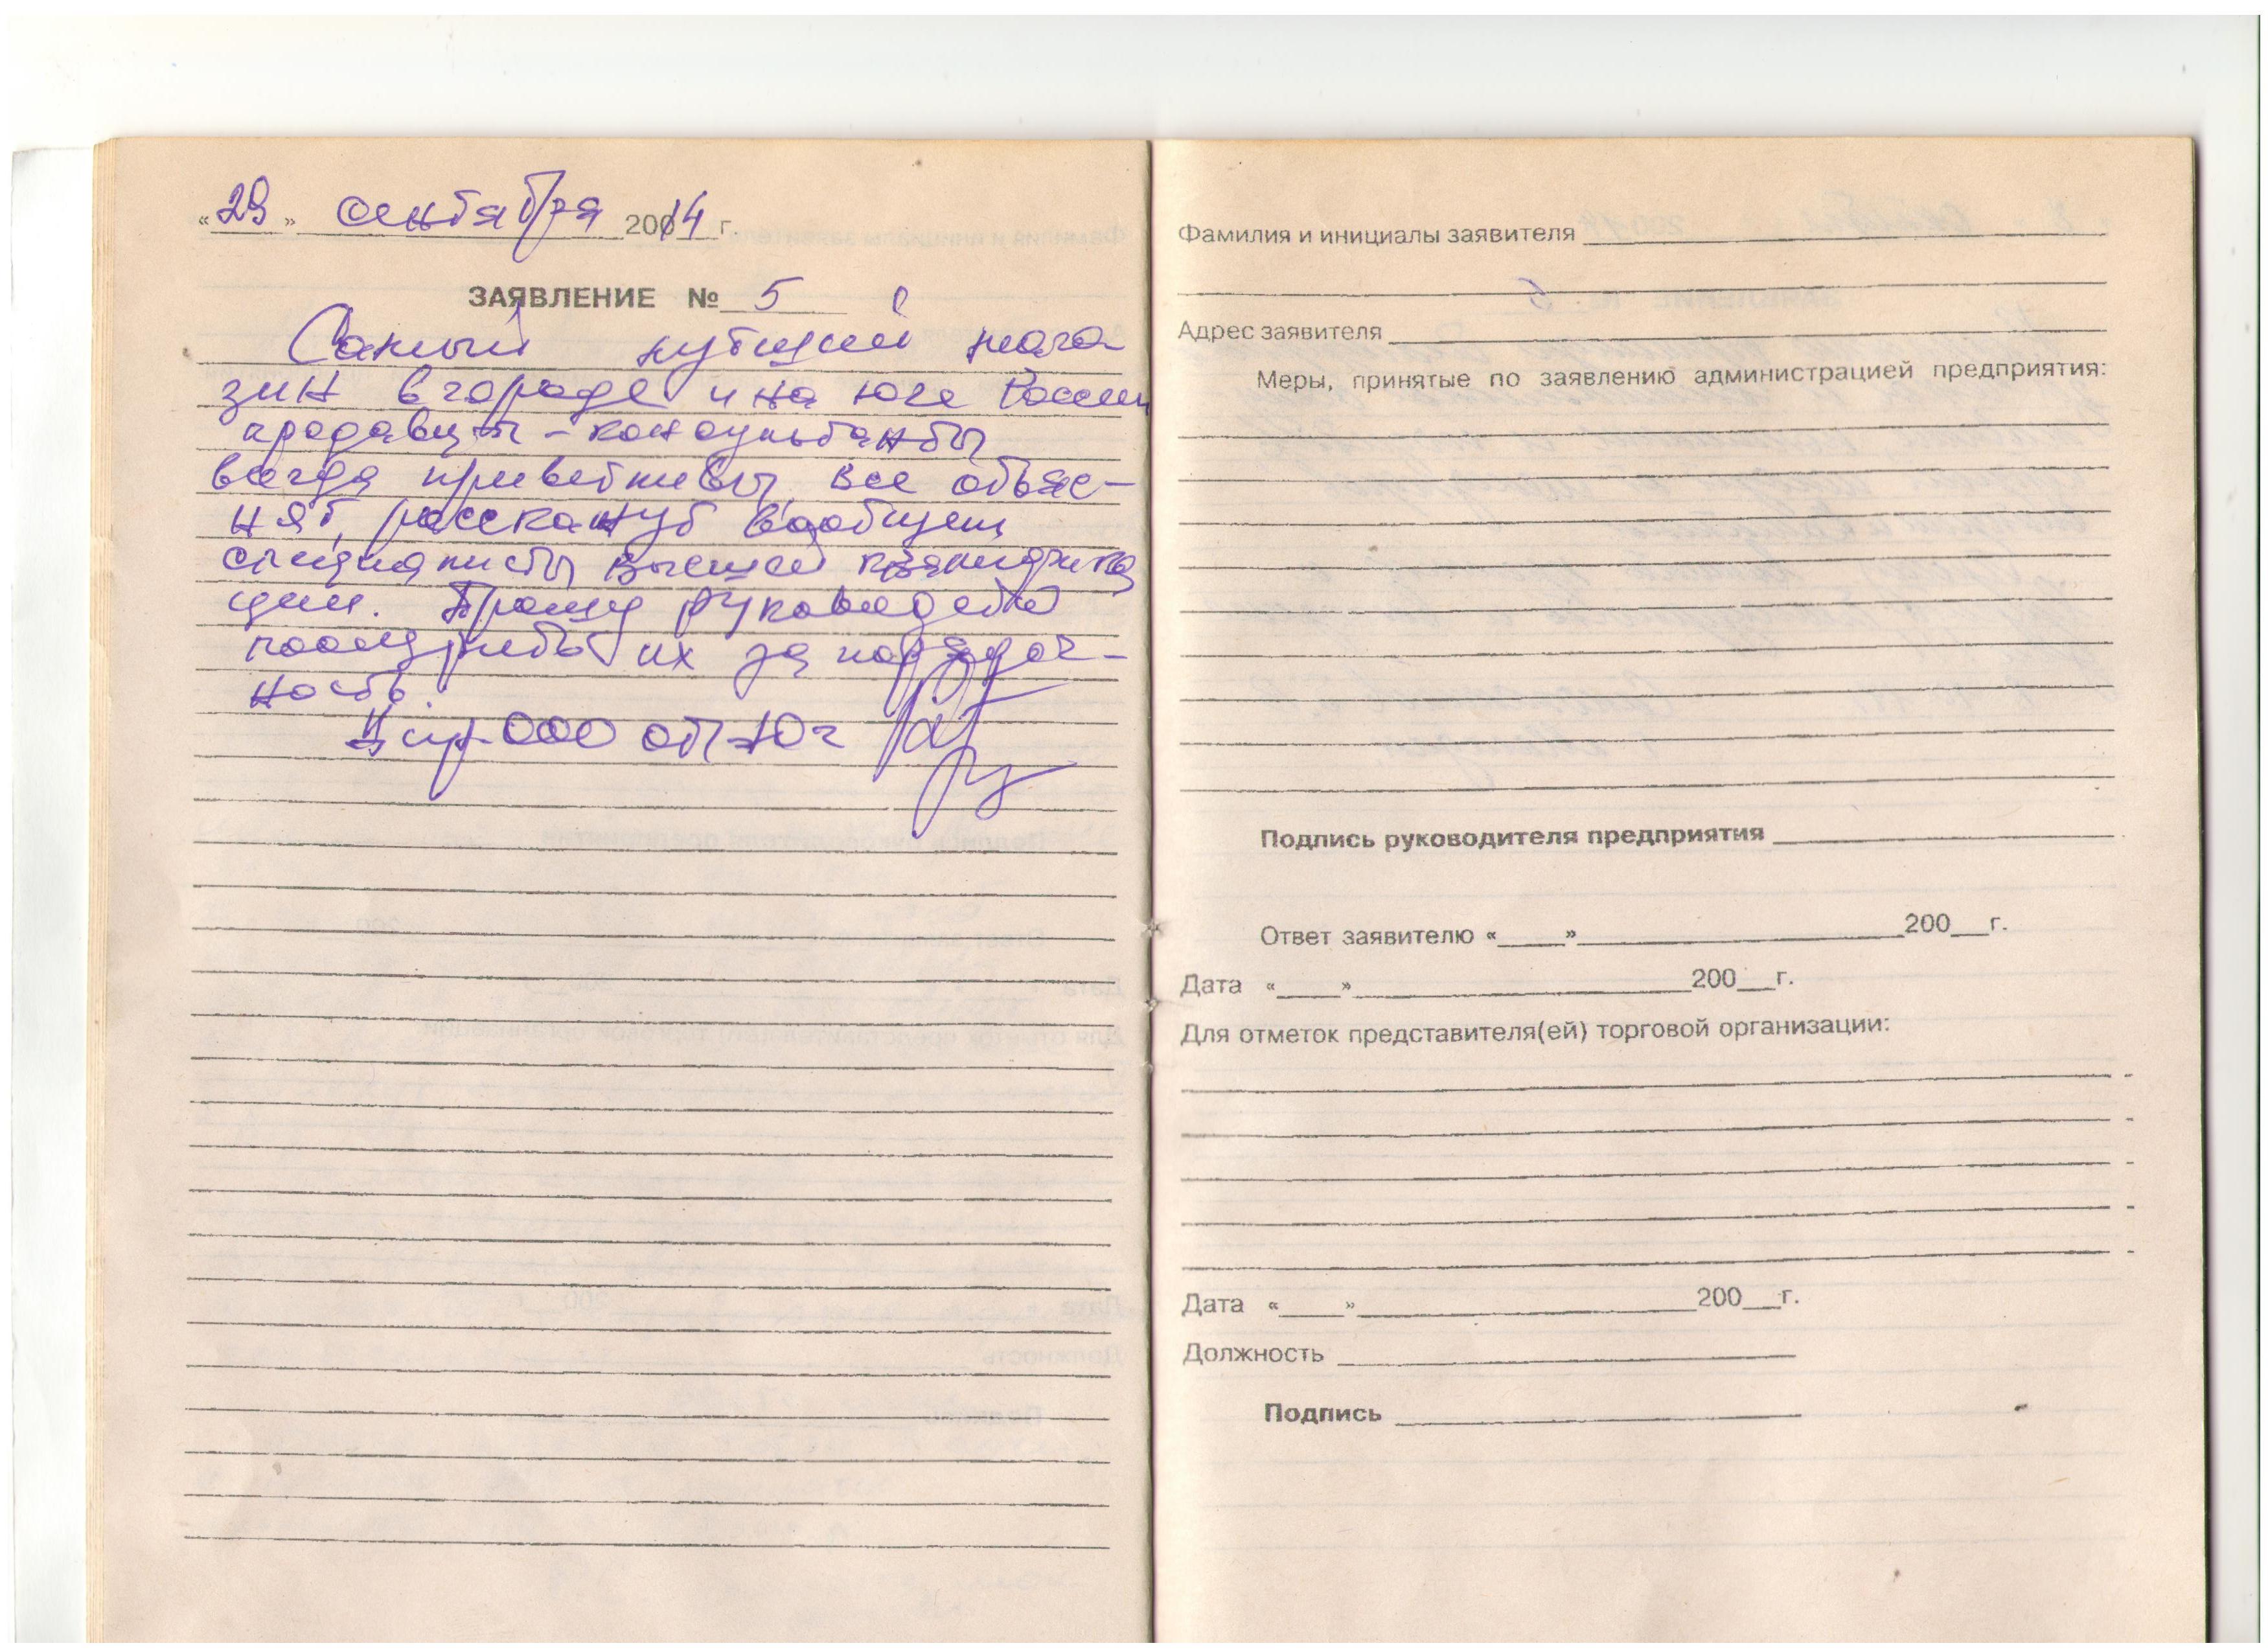 «29» сентября 20014 г.
ЗАЯВЛЕНИЕ № 5
Самый лутщий мага-
зин в городе и на юге России
продавцы-консультанты
всегда приветливы, все объяс-
нят, расскажут вообщем
специалисты высшей квалифика
ции. Прошу руководство
поощрить их за порядоч-
ность.
ООО
Фамилия и инициалы заявителя
Адрес заявителя
Меры, принятые по заявлению администрацией предприятия:
Подпись руководителя предприятия
Ответ заявителю «____»____200__г.
Дата «____»____200__г.
Для отметок представителя(ей) торговой организации:
Дата «____»____200__г.
Должность
Подпись